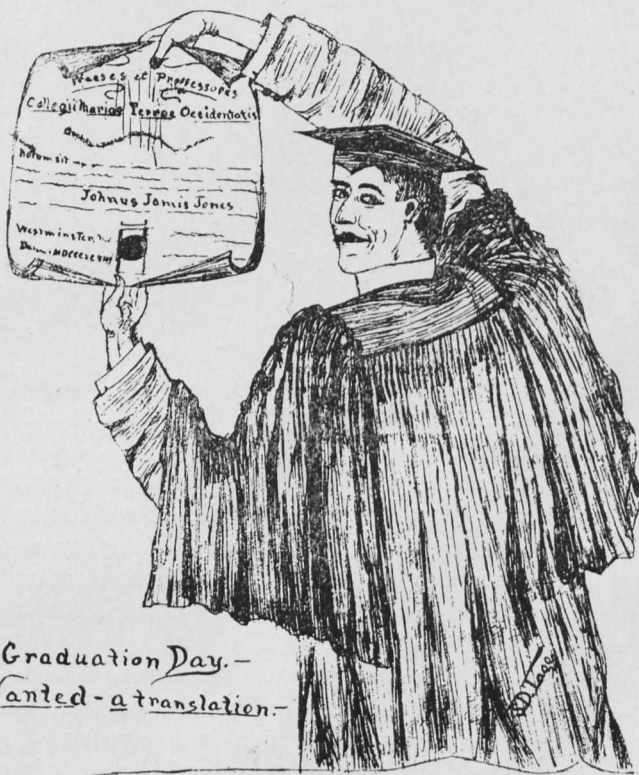 Praeses et Proffessores
Collegii Mariae Terrae Occidentalis
notum sit
Johnus Jamis Jones
Westminster
Graduation Day.-
Wanted - a translation.-